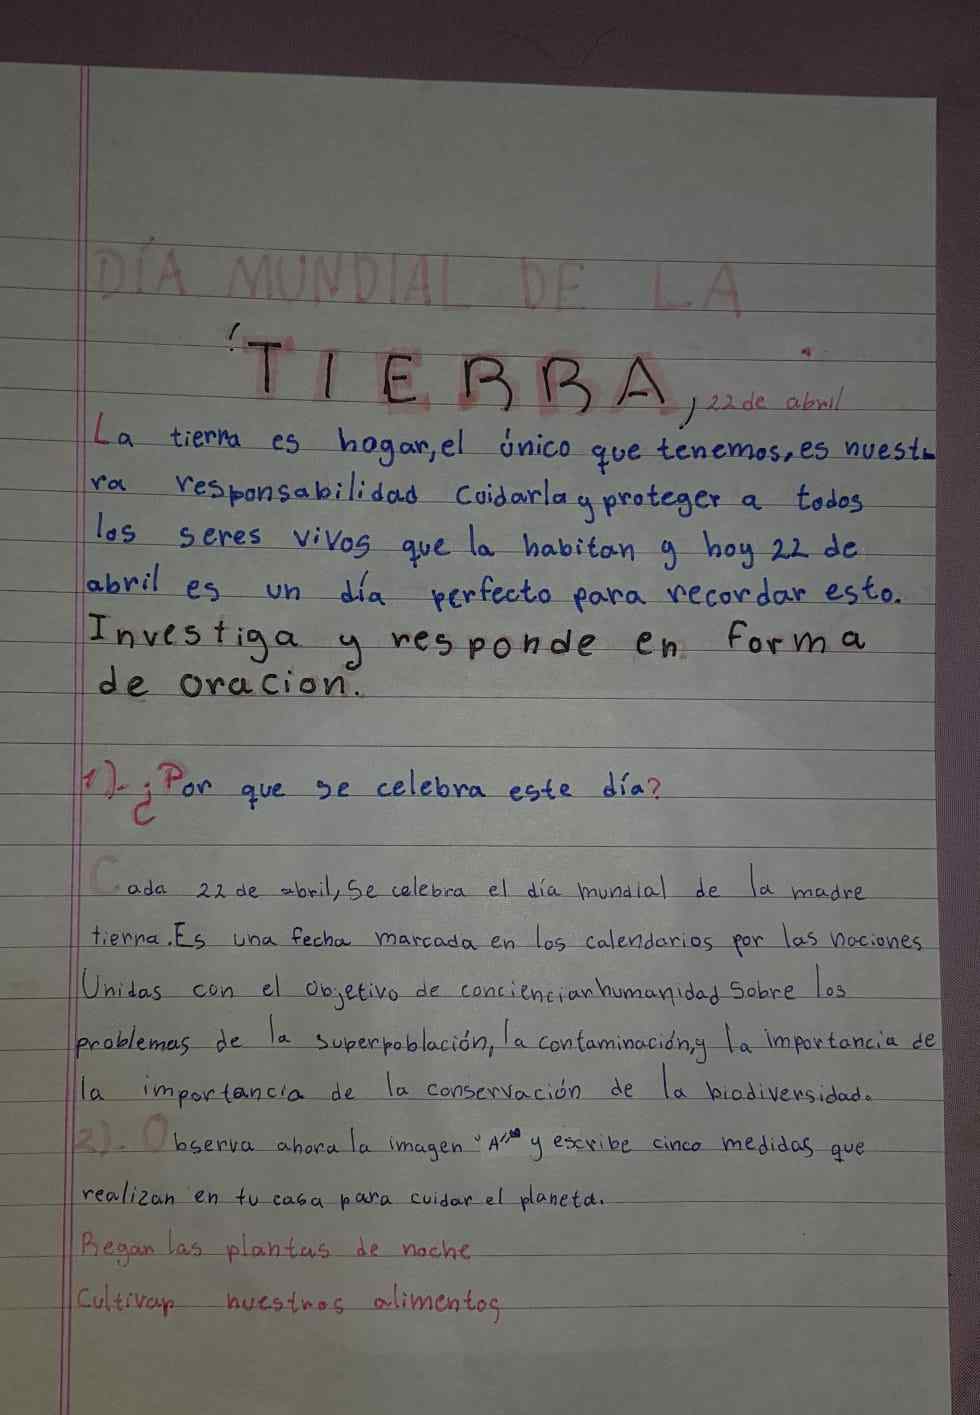 DÍA MUNDIAL DE LA
TIERRA, 22 de abril
La tierra es hogar, el único que tenemos, es nuest-
ra responsabilidad cuidarla y proteger a todos
los seres vivos que la habitan y hoy 22 de
abril es un día perfecto para recordar esto.
Investiga y responde en forma
de oracion.
1).- ¿Por que se celebra este día?
Cada 22 de abril, Se celebra el día mundial de la madre
tierra. Es una fecha marcada en los calendarios por las naciones
Unidas con el objetivo de concienciar humanidad sobre los
problemas de la superpoblación, la contaminación, y la importancia de
la importancia de la conservación de la biodiversidad.
2). Observa ahora la imagen "A" y escribe cinco medidas que
realizan en tu casa para cuidar el planeta.
Regar las plantas de noche
Cultivar nuestros alimentos